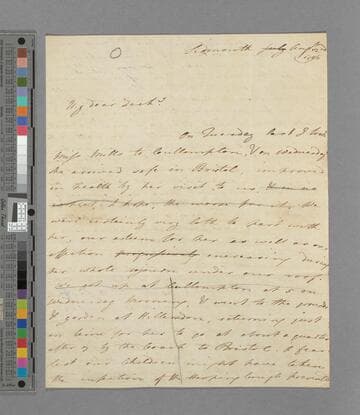 Sidmouth July Aug 22d
1796
My dear Jack!
On Tuesday last I took
Miss Mills to Coullumpton, & on Wednesday
she arrived safe in Bristol, improved
in health by her visit to us,
I hope, the worse for it. We
were certainly very loth to part with
her, our esteem for her as well as our
affection increasing during
her whole sojourn under our roof.
We got up at Cullumpton at 5 on
Wednesday morning, & went to the
& garden at Killerton, returning just
in time for her to go at about a quarter
after 9 by the coach to Bristol. I fear
lest our Children might have taken
the infection of the Hooping Cough